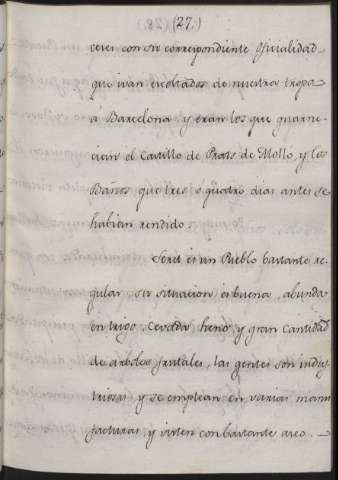 (27.)
ceses con su correspondiente Oficialidad
que ivan escoltados de nuestra tropa
á Barcelona y eran los que guarne-
cian el Castillo de Prats de Mollo, y los
Baños que tres o quatro dias antes se
habian rendido.
Seret es un Pueblo bastante re-
gular, su situacion es buena, abunda
en trigo, Cevada, heno, y gran Cantidad
de arboles frutales, las gentes son indus-
triosas, y se emplean en varias manu
facturas, y visten con bastante aseo.